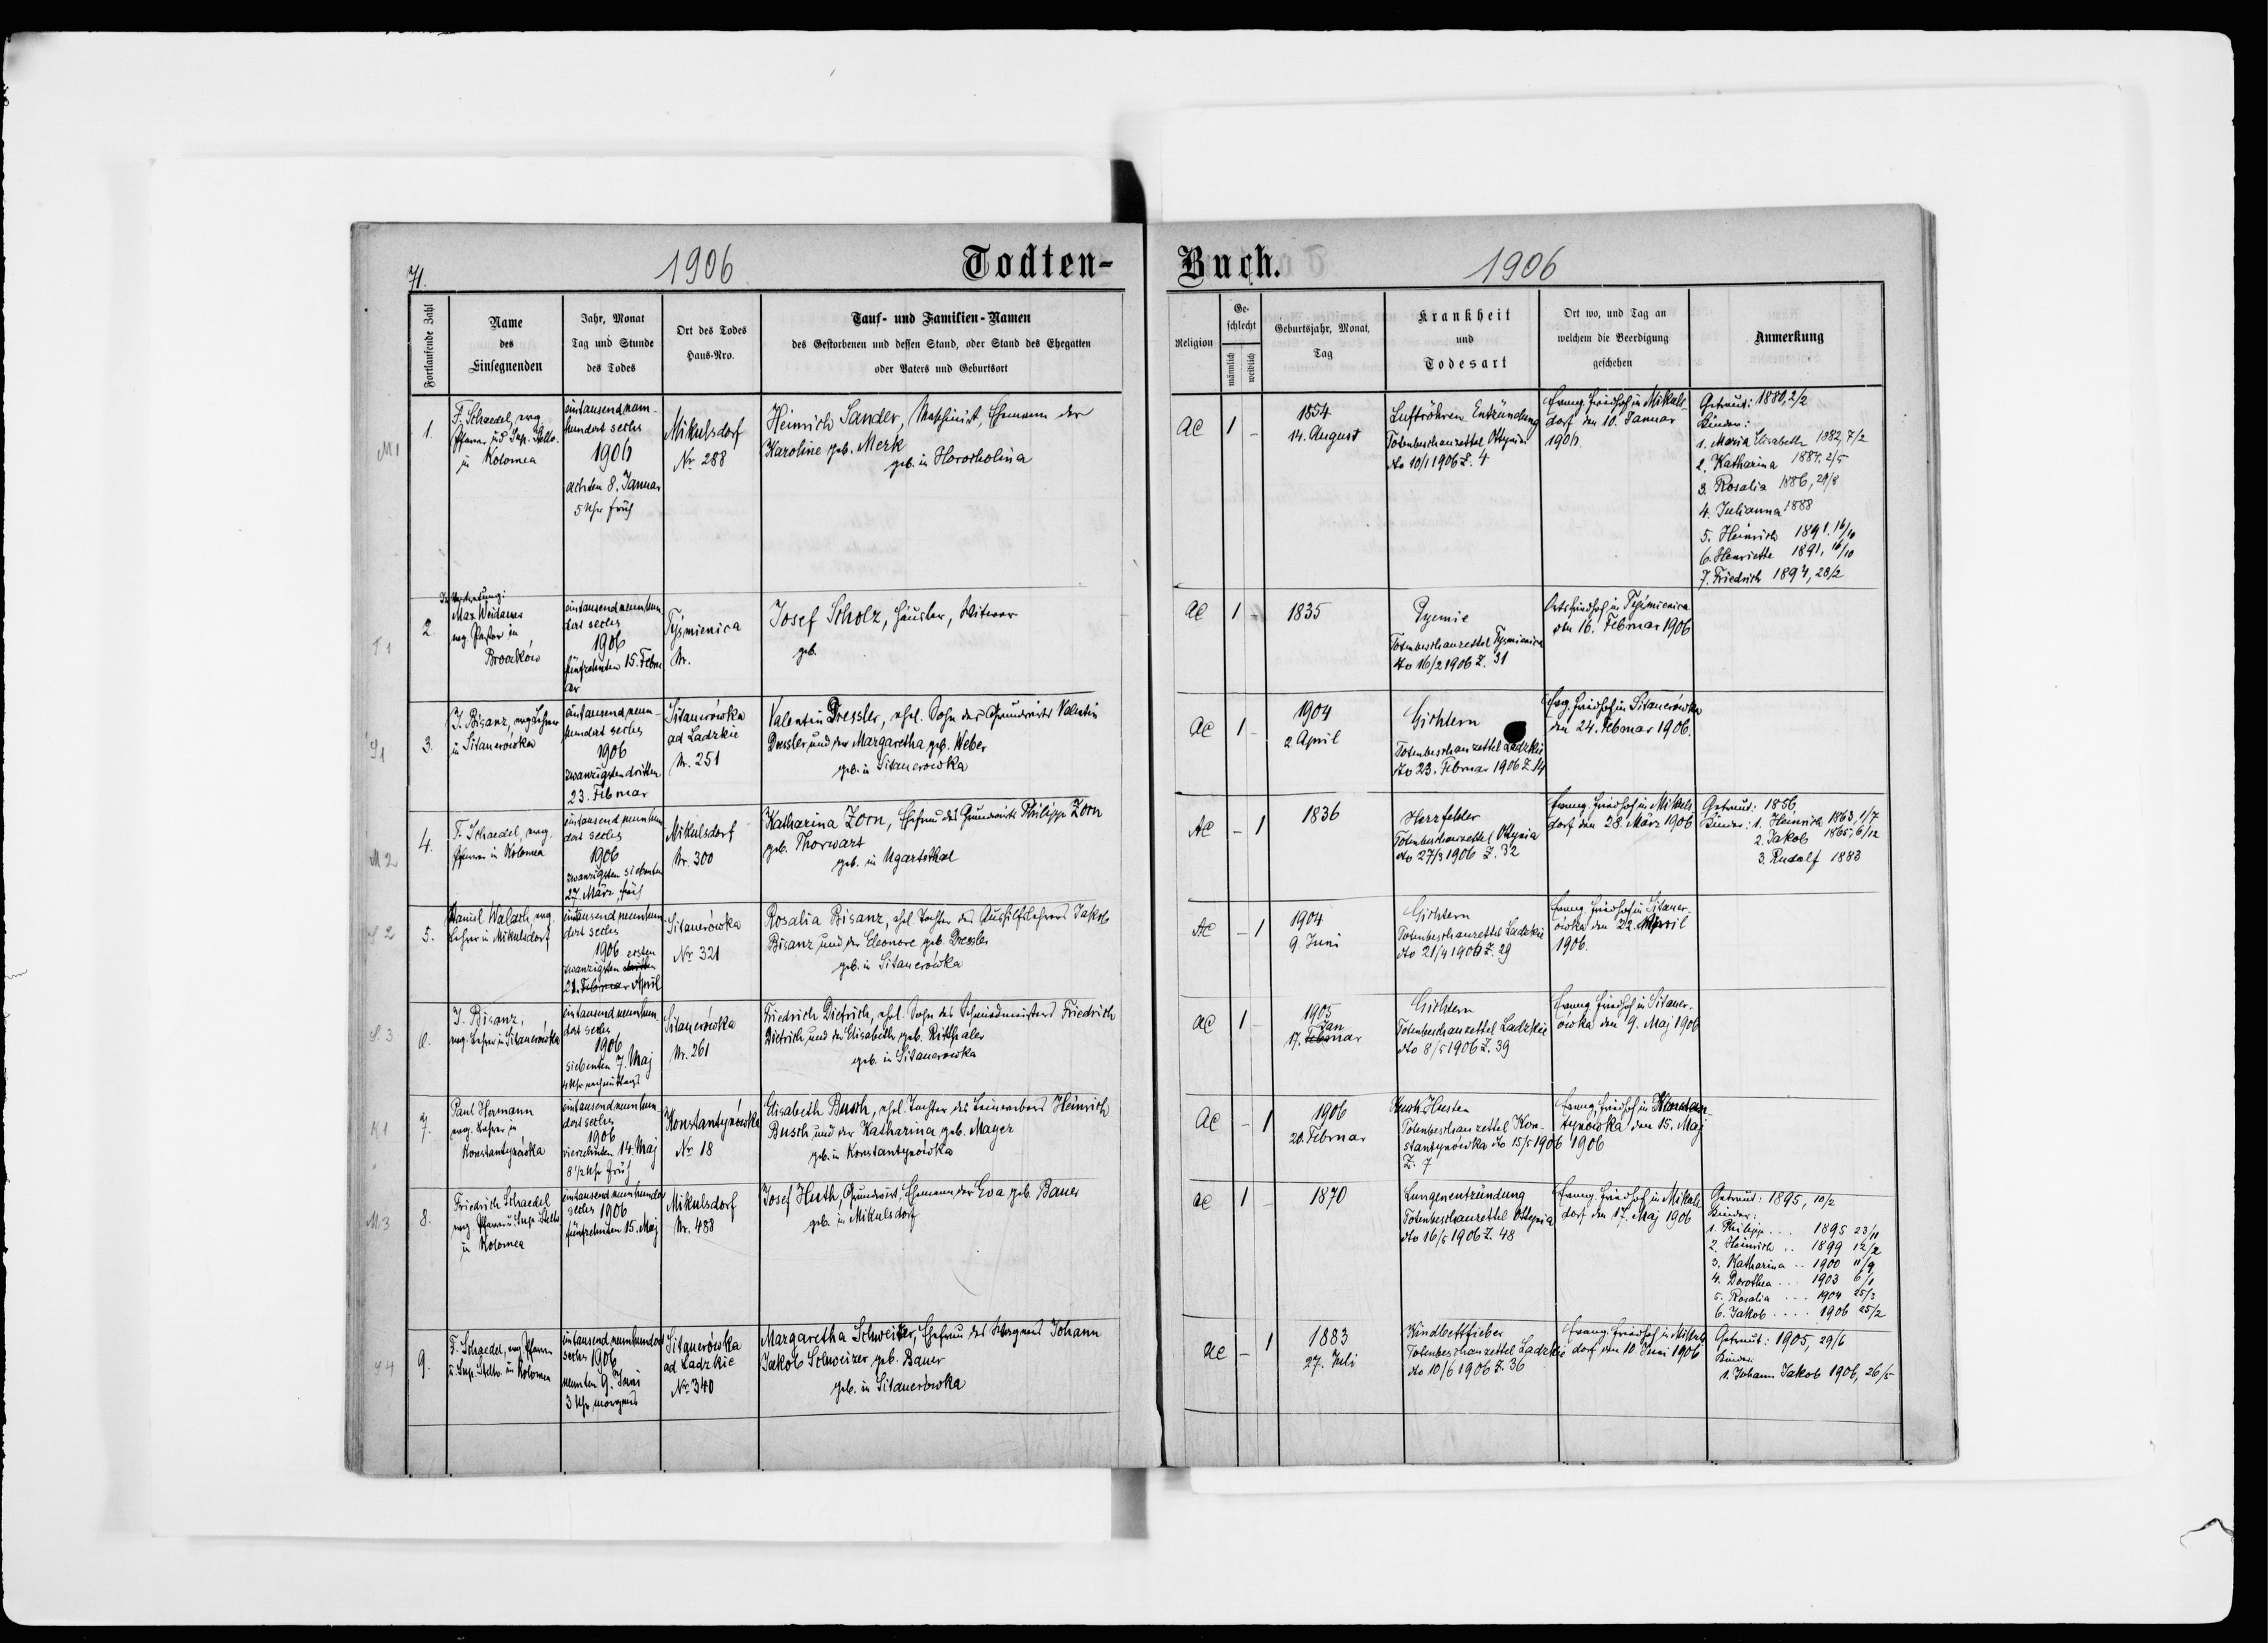 71.
1906
Todten-
Buch.
1906
Fortlaufende Zahl
Name
des
Einsegnenden
Jahr, Monat
Tag und Stunde
des Todes
Ort des Todes
Haus-Nro.
Tauf- und Familien-Namen
des Gestorbenen und dessen Stand, oder Stand des Ehegatten
oder Vaters und Geburtsort
Religion
Ge-
schlecht
männlich
weiblich
Geburtsjahr, Monat,
Tag
Krankheit
und
Todesart
Ort wo, und Tag an
welchem die Beerdigung
geschehen
Anmerkung
M1
1.
F. Schaedel, evg.
Pfarrer und Sup. Stellv.
in Kolomea
eintausendneun-
hundert sechs
1906
achten 8. Januar
5 Uhr früh
Mikulsdorf
Nr. 288
Heinrich Sander, Maschinist, Ehemann der
Karoline geb. Merk
geb. in Horocholina
AC
1
-
1854
14. August
Luftröhren Entzündung
Totenbeschauzettel Ottynia
dto 10/1 1906 Z. 4
Evang. Friedhof in Mikuls-
dorf den 10. Januar
1906
Getraut: 1880, 2/2
Kinder:
1. Maria Elisabeth 1882, 7/2
2. Katharina 1884. 2/5
3. Rosalia 1886, 29/8
4. Julianna 1888
5. Heinrich 1891. 16/10
6. Henriette 1891, 16/10
7. Friedrich 1894, 28/2
T1
2.
In Vertretung:
Max Weidauer
evg. Pastor in
eintausendneunhun-
dert sechs
1906
fünfzehnten 15. Febru
ar
Tyśmienica
Nr.
Josef Scholz, Häusler, Witwer
geb.
AC
1
-
1835
Pyemie
Totenbeschauzettel Tysmienica
dto 16/2 1906 Z. 31
Ortsfriedhof in Tyśmienica
den 16. Februar 1906
S1
3.
J. Bisanz, evg. Lehrer
in Sitauerówka
eintausendneun-
hundert sechs
1906
zwanzigsten dritten
23. Februar
Sitauerówka
ad Ladzkie
Nr. 251
Valentin Dressler, ehel. Sohn des Grundwirts Valentin
Dressler und der Margaretha geb. Weber
geb. in Sitauerówka
AC
1
-
1904
2. April
Gichtern
Totenbeschauzettel Ladzkie
dto 23. Februar 1906 Z. 14
Evg. Friedhof in Sitauerówka
den 24. Februar 1906.
M2
4.
F. Schaedel, evg.
Pfarrer in Kolomea
eintausendneunhun
dert sechs
1906
zwanzigsten siebenten
27. März, früh
Mikulsdorf
Nr. 300
Katharina Zorn, Ehefrau des Grundwirts Philipp Zorn
geb. Thorwart
geb. in Ugartsthal
AC
-
1
1836
Herzfehler
Totenbeschauzettel Ottynia
dto 27/3 1906 Z. 32
Evang. Friedhof in Mikuls
dorf den 28. März 1906
Getraut: 1856,
Kinder: 1. Heinrich 1863, 1/7
2. Jakob 1865, 6/12
3. Rudolf 1883
S2
5.
Daniel Walach, evg.
Lehrer in Mikulsdorf
eintausendneunhun-
dert sechs
1906 ersten
zwanzigsten dritten
21. Februar April
Sitauerówka
Nr. 321
Rosalia Bisanz, ehel. Tochter des Aushilfslehrers Jakob
Bisanz und der Eleonore geb. Dressler
geb. in Sitauerówka
AC
-
1
1904
9. Juni
Gichtern
Totenbeschauzettel Ladzkie
dto 21/4 1906 Z. 29
Evang. Friedhof in Sitauer-
ówka den 22. April
1906
S. 3
6.
J. Bisanz,
evg. Lehrer in Sitauerówka
eintausendneunhun-
dert sechs
1906
siebenten 7. Maj
4 Uhr nachmittags
Sitauerówka
Nr. 261
Friedrich Dietrich, ehel. Sohn des Schmiedmeisters Friedrich
Dietrich und der Elisabeth geb. Ritthaler
geb. in Sitauerówka
AC
1
-
1905
Jan
17. Februar
Gichtern
Totenbeschauzettel Ladzkie
dto 8/5 1906 Z. 39
Evang. Friedhof in Sitauer-
ówka den 9. Maj 1906
K1
7.
Paul Hermann
evg. Lehrer in
Konstantynówka
eintausendneunhun-
dert sechs
1906
vierzehnten 14. Maj
8 1/2 Uhr früh
Konstantynówka
Nr. 18
Elisabeth Busch, ehel. Tochter des Leinwebers Heinrich
Busch und der Katharina geb. Mayer
geb. in Konstantynówka
AC
-
1
1906
20. Februar
Keuch Husten
Totenbeschauzettel Kon-
stantynówka dto 15/5 1906
Z. 7
Evang. Friedhof in Konstan-
tynówka den 15. Maj
1906
M3
8.
Friedrich Schaedel
evg. Pfarrer u. Sup. Stellv.
in Kolomea
eintausendneunhundert
sechs 1906
fünfzehnten 15. Maj
Mikulsdorf
Nr. 488
Josef Huth, Grundwirt, Ehemann der Eva geb. Bauer
geb. in Mikulsdorf
AC
1
-
1870
Lungenentzündung
Totenbeschauzettel Ottynia
dto 16/5 1906 Z. 48
Evang. Friedhof in Mikuls
dorf den 17. Maj 1906
Getraut: 1895, 10/2
Kinder:
1. Philipp ... 1895 23/11
2. Heinrich .. 1899 12/2
3. Katharina .. 1900 11/9
4. Dorothea ... 1903 6/1
5. Rosalia .... 1904 25/3
6. Jakob .... 1906 25/2
S4
9.
F. Schaedel, evg. Pfarrer
u. Sup. Stellv. in Kolomea
eintausendneunhundert
sechs 1906
neunten 9. Juni
3 Uhr morgens
Sitauerówka
ad Ladzkie
Nr. 340
Margaretha Schweitzer, Ehefrau des Wagners Johann
Jakob Schweizer geb. Bauer
geb. in Sitauerówka
AC
-
1
1883
27. Juli
Kindbettfieber
Totenbeschauzettel Ladzkie
dto 10/6 1906 Z. 36
Evang. Friedhof in Mikuls
dorf den 10 Juni 1906
Getraut: 1905, 29/6
Kinder:
1. Johann Jakob 1906, 26/5